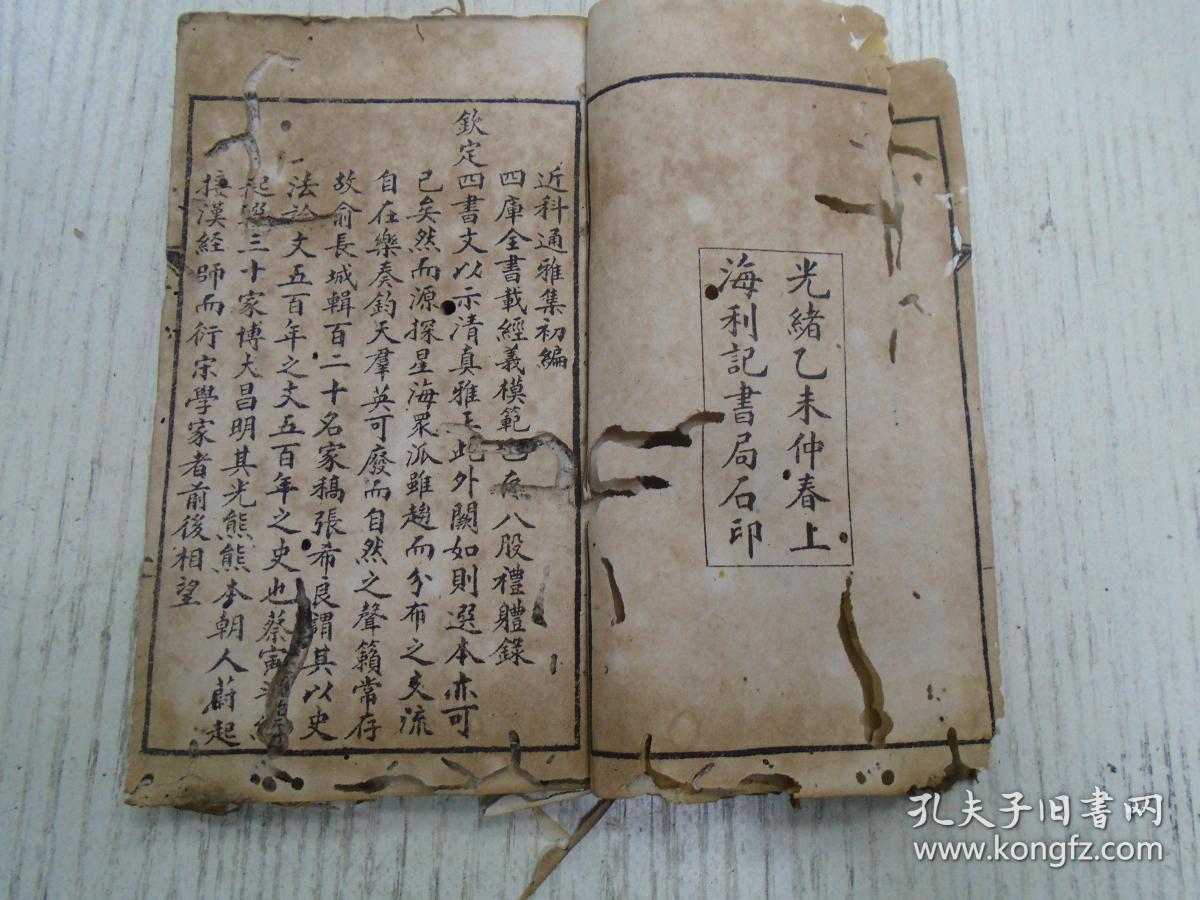 光緒乙未仲春上
海利記書局石印
近科通雅集初編
四庫全書載經義模範八股禮體錄
欽定四書文以示清真雅正此外闕如則選本亦可
已矣然而源探星海眾派雖趨而分布之支流
自在樂奏鈞天羣英可廢而自然之聲籟常存
故俞長城輯百二十名家稿張希良謂其以史
法於文五百年之文五百年之史也蔡寅斗
起選三十家博大昌明其光熊熊本朝人蔚起
接漢經師而衍宋學家者前後相望
孔夫子旧书网
www.kongfz.com